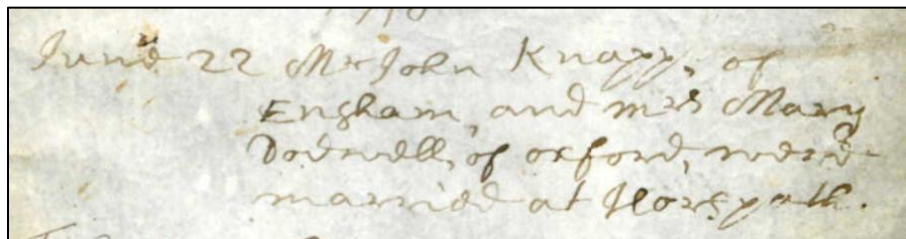 June 22 Mr John Knapp, of
Ensham, and mrs Mary
Dodwell, of oxford, were
married at Horspath.